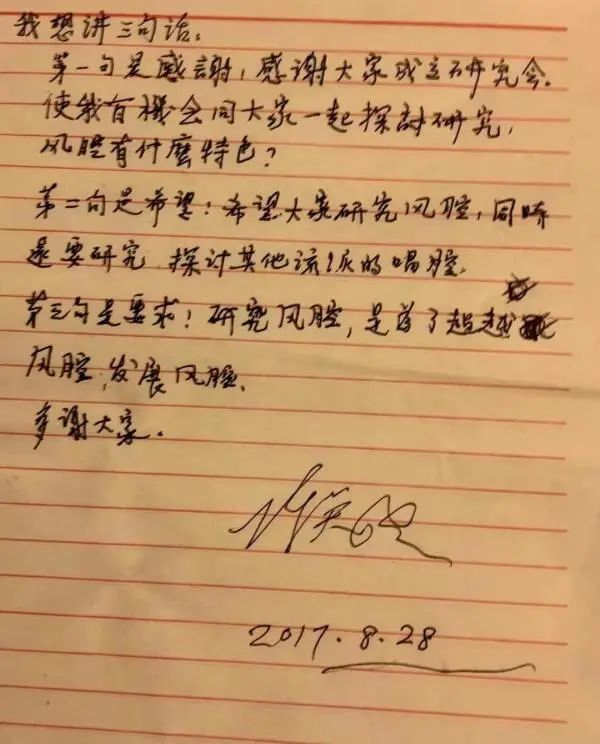 我想讲三句话:
第一句是感謝,感谢大家成立研究会.
使我有機会同大家一起探討研究,
风腔有什麼特色?
第二句是希望:希望大家研究风腔,同时
還要研究、探讨其他流派的唱腔.
第三句是要求!研究风腔,是为了超越
风腔,发展风腔.
多谢大家.
2017.8.28